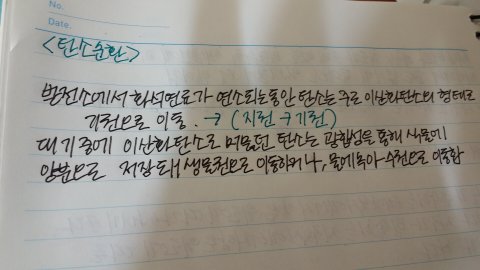 No.
Date.
<탄소순환>
발전소에서 화석연료가 연소되는동안 탄소는 주로 이산화탄소의 형태로
기권으로 이동. → (지권→기권)
대기중에 이산화탄소로 머물던 탄소는 광합성을 통해 식물에
양분으로 저장돼 생물권으로 이동하거나, 물에녹아 수권으로 이동함